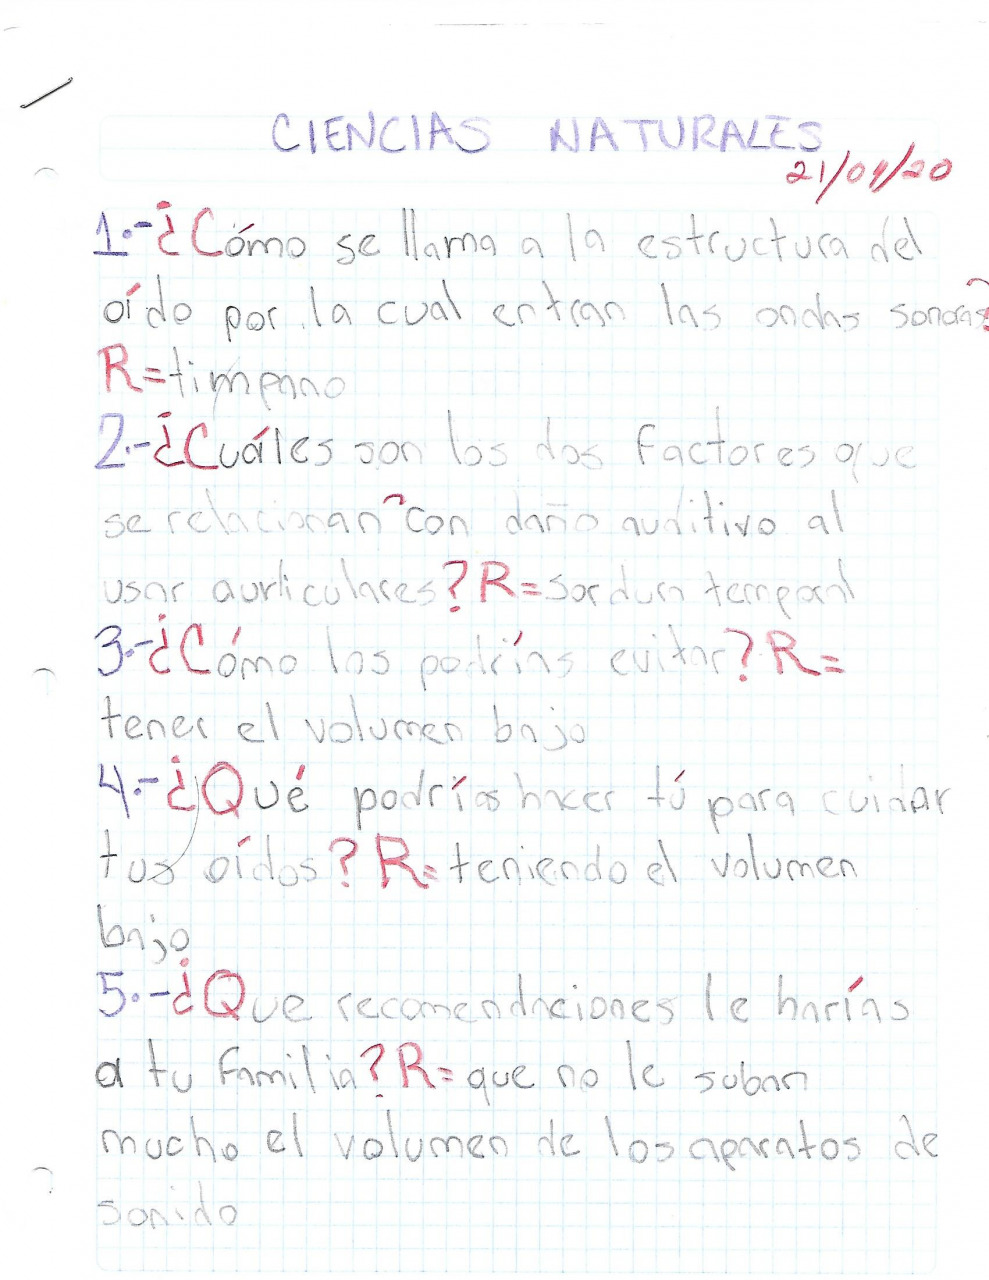 CIENCIAS NATURALES
21/04/20
1.-¿Cómo se llama a la estructura del
oído por la cual entran las ondas sonoras?
R=timpano
2.-¿Cuáles son los dos factores que
se relacionan con daño auditivo al
usar aurliculares? R=sordura temporal
3.-¿Cómo los podrías evitar? R=
tener el volumen bajo
4.-¿Qué podrías hacer tú para cuidar
tus oídos? R=teniendo el volumen
bajo
5.-¿Que recomendaciones le harías
a tu familia? R=que no le suban
mucho el volumen de los aparatos de
sonido